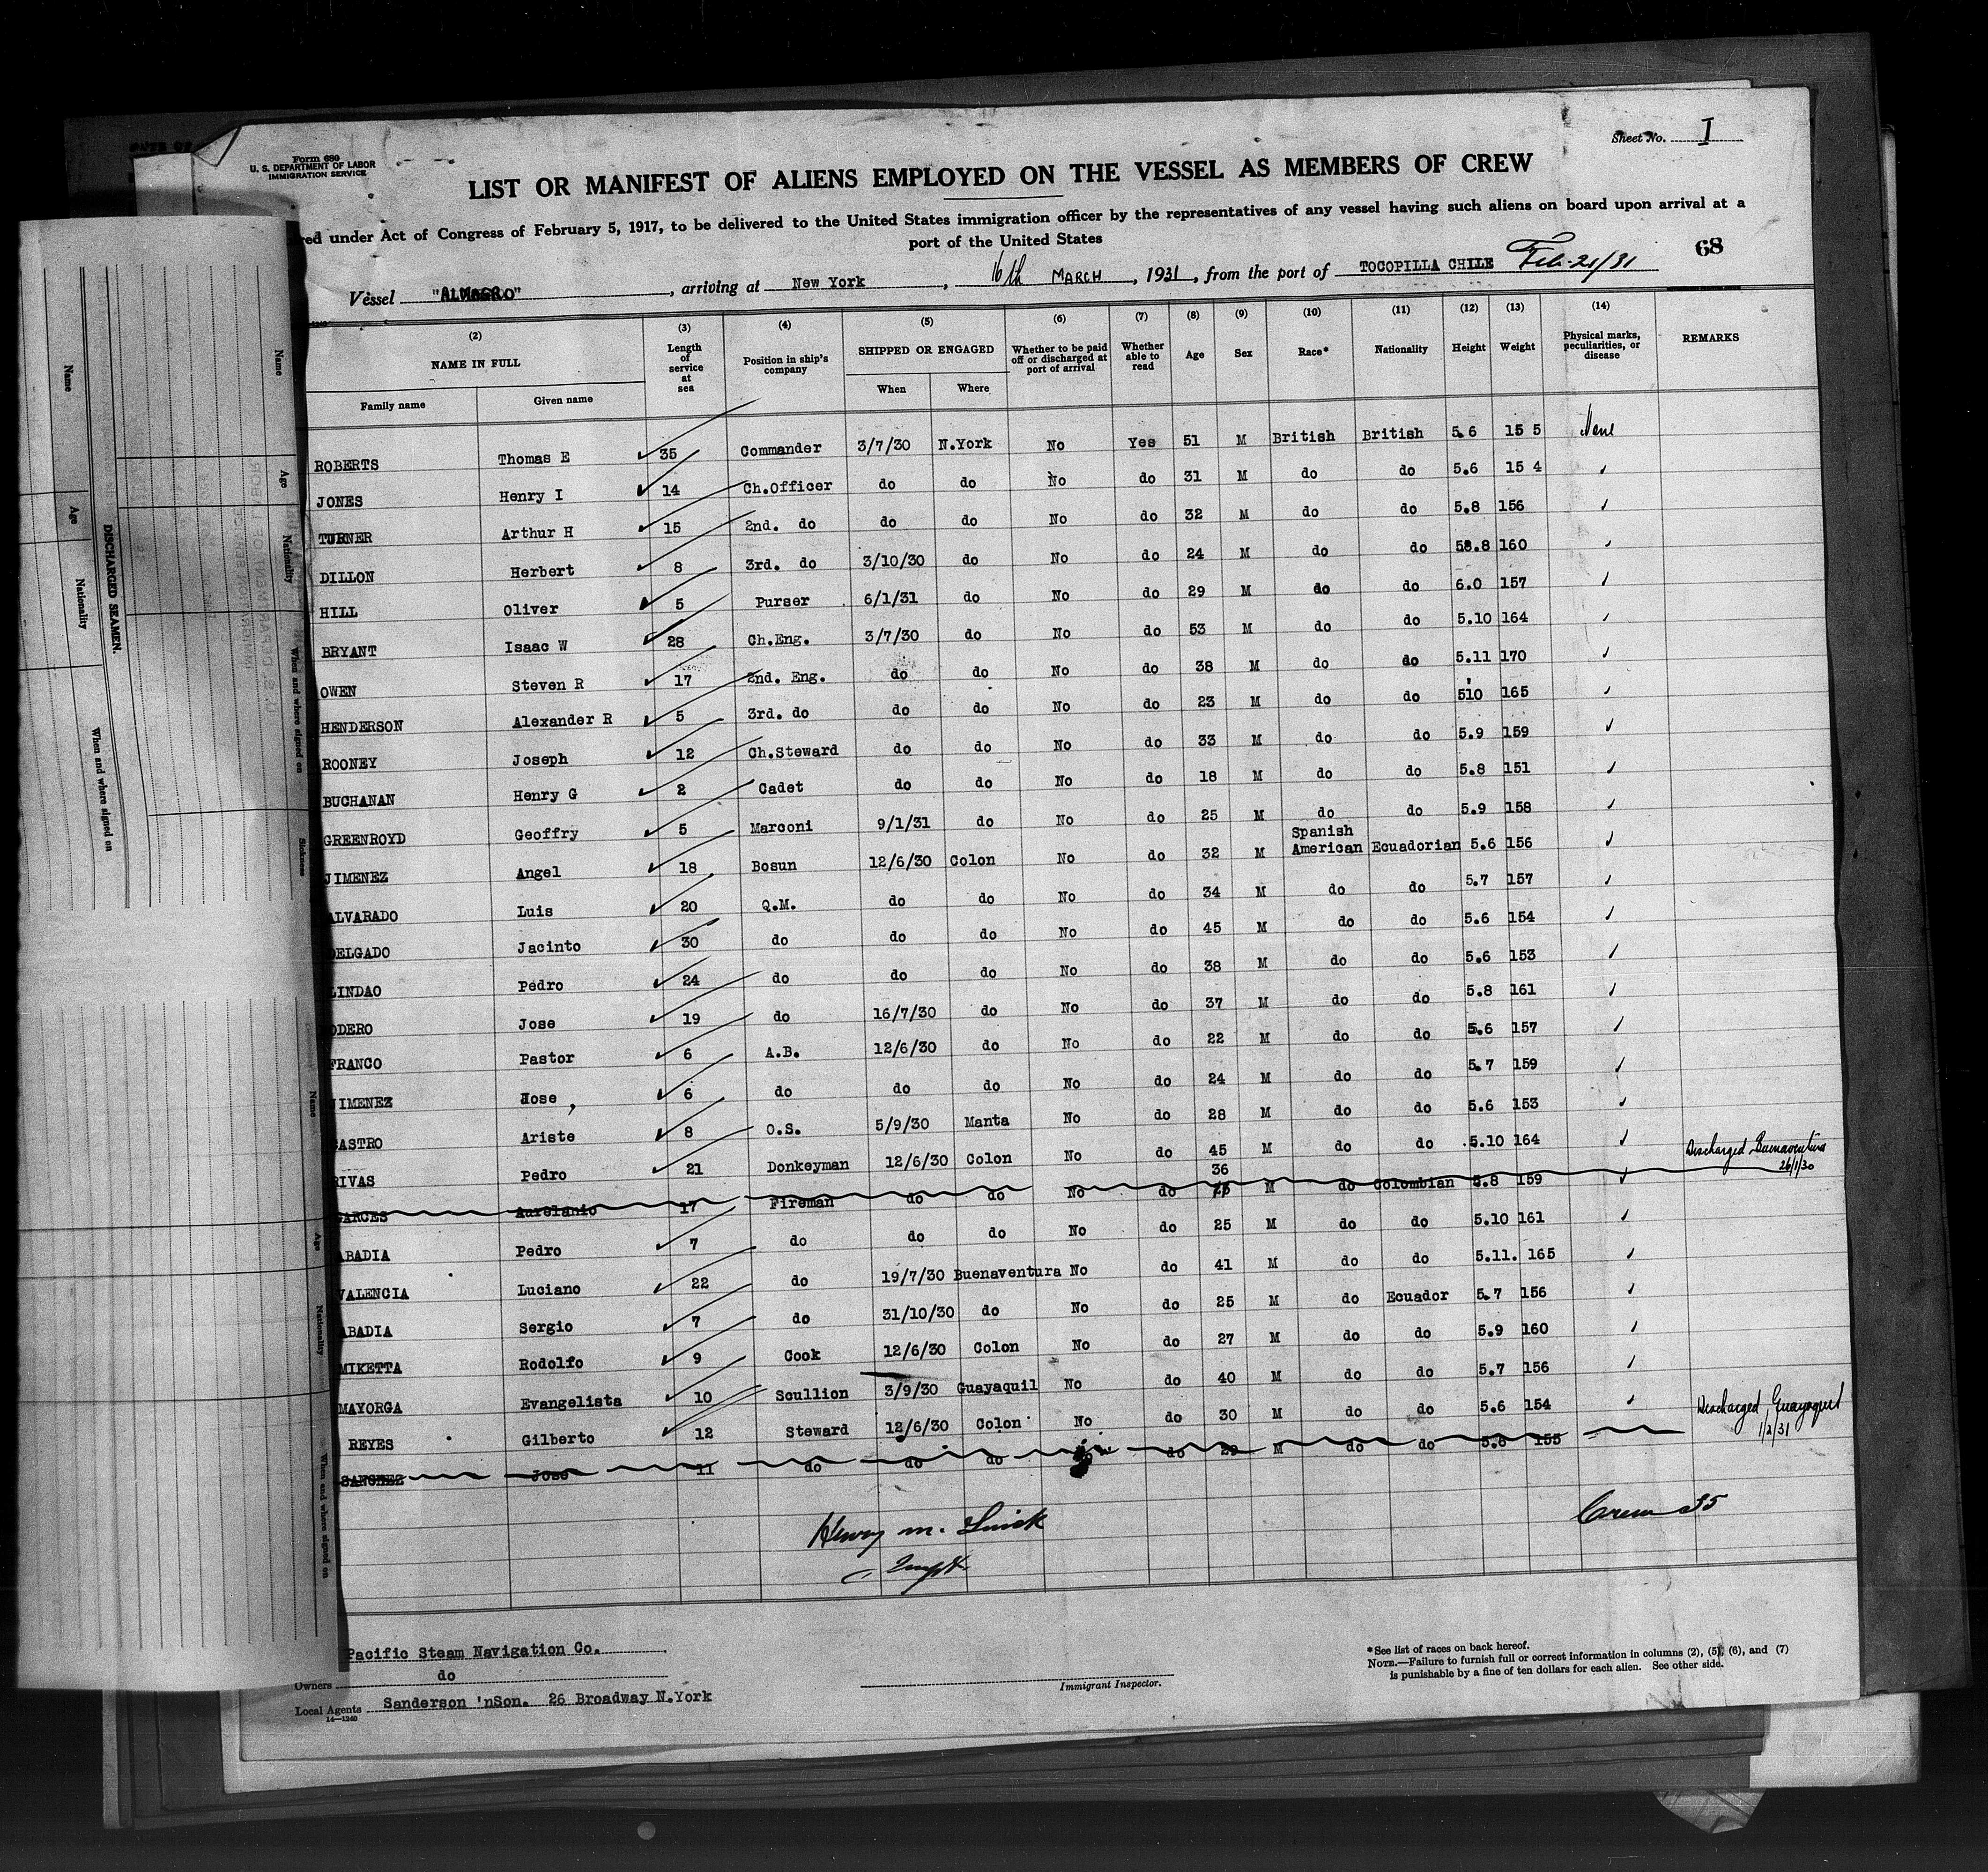 Form 680
U. S. DEPARTMENT OF LABOR
IMMIGRATION SERVICE
Sheet No. I
LIST OR MANIFEST OF ALIENS EMPLOYED ON THE VESSEL AS MEMBERS OF CREW
red under Act of Congress of February 5, 1917, to be delivered to the United States immigration officer by the representatives of any vessel having such aliens on board upon arrival at a
port of the United States
68
Vessel "ALMAGRO", arriving at New York, 16th MARCH, 1931, from the port of TOCOPILLA CHILE Feb. 21/31
(2) (3) (4) (5) (6) (7) (8) (9) (10) (11) (12) (13) (14)
NAME IN FULL Length of service at sea Position in ship's company SHIPPED OR ENGAGED Whether to be paid off or discharged at port of arrival Whether able to read Age Sex Race* Nationality Height Weight Physical marks, peculiarities, or disease REMARKS
Family name Given name When Where
ROBERTS Thomas E 35 Commander 3/7/30 N.York No Yes 51 M British British 5.6 15 5 None
JONES Henry I 14 Ch.Officer do do No do 31 M do do 5.6 15 4
TURNER Arthur H 15 2nd. do do do No do 32 M do do 5.8 156
DILLON Herbert 8 3rd. do 3/10/30 do No do 24 M do do 58.8 160
HILL Oliver 5 Purser 6/1/31 do No do 29 M do do 6.0 157
BRYANT Isaac W 28 Ch.Eng. 3/7/30 do No do 53 M do do 5.10 164
OWEN Steven R 17 2nd. Eng. do do No do 38 M do do 5.11 170
HENDERSON Alexander R 5 3rd. do do do No do 23 M do do 510 165
ROONEY Joseph 12 Ch.Steward do do No do 33 M do do 5.9 159
BUCHANAN Henry G 2 Cadet do do No do 18 M do do 5.8 151
GREENROYD Geoffry 5 Marconi 9/1/31 do No do 25 M do do 5.9 158
JIMENEZ Angel 18 Bosun 12/6/30 Colon No do 32 M Spanish American Ecuadorian 5.6 156
ALVARADO Luis 20 Q.M. do do No do 34 M do do 5.7 157
DELGADO Jacinto 30 do do do No do 45 M do do 5.6 154
LINDAO Pedro 24 do do do No do 38 M do do 5.6 153
ODERO Jose 19 do 16/7/30 do No do 37 M do do 5.8 161
FRANCO Pastor 6 A.B. 12/6/30 do No do 22 M do do 5.6 157
JIMENEZ Jose , 6 do do do No do 24 M do do 5.7 159
CASTRO Ariste 8 O.S. 5/9/30 Manta No do 28 M do do 5.6 153
RIVAS Pedro 21 Donkeyman 12/6/30 Colon No do 45 M do do 5.10 164
GARCES Aurelanio 17 Fireman do do No do 36 M do Colombian 5.8 159 Discharged Buenaventura 26/1/30
ABADIA Pedro 7 do do do No do 25 M do do 5.10 161
VALENCIA Luciano 22 do 19/7/30 Buenaventura No do 41 M do do 5.11. 165
ABADIA Sergio 7 do 31/10/30 do No do 25 M do Ecuador 5.7 156
MIKETTA Rodolfo 9 Cook 12/6/30 Colon No do 27 M do do 5.9 160
MAYORGA Evangelista 10 Scullion 3/9/30 Guayaquil No do 40 M do do 5.7 156
REYES Gilberto 12 Steward 12/6/30 Colon No do 30 M do do 5.6 154
SANCHEZ Jose 11 do do do do 29 M do do 5.6 155 Discharged Guayaquil 1/2/31
Henry M.
Crew 35
Pacific Steam Navigation Co.
Owners do
Local Agents Sanderson 'nSon. 26 Broadway N.York
14—1240
Immigrant Inspector.
*See list of races on back hereof.
NOTE.—Failure to furnish full or correct information in columns (2), (5), (6), and (7)
is punishable by a fine of ten dollars for each alien. See other side.
DISCHARGED SEAMEN.
Name Age Nationality When and where signed on
Name Age Nationality When and where signed on Sickness
Name Age Nationality When and where signed on
U. S. DEPARTMENT OF LABOR
IMMIGRATION SERVICE